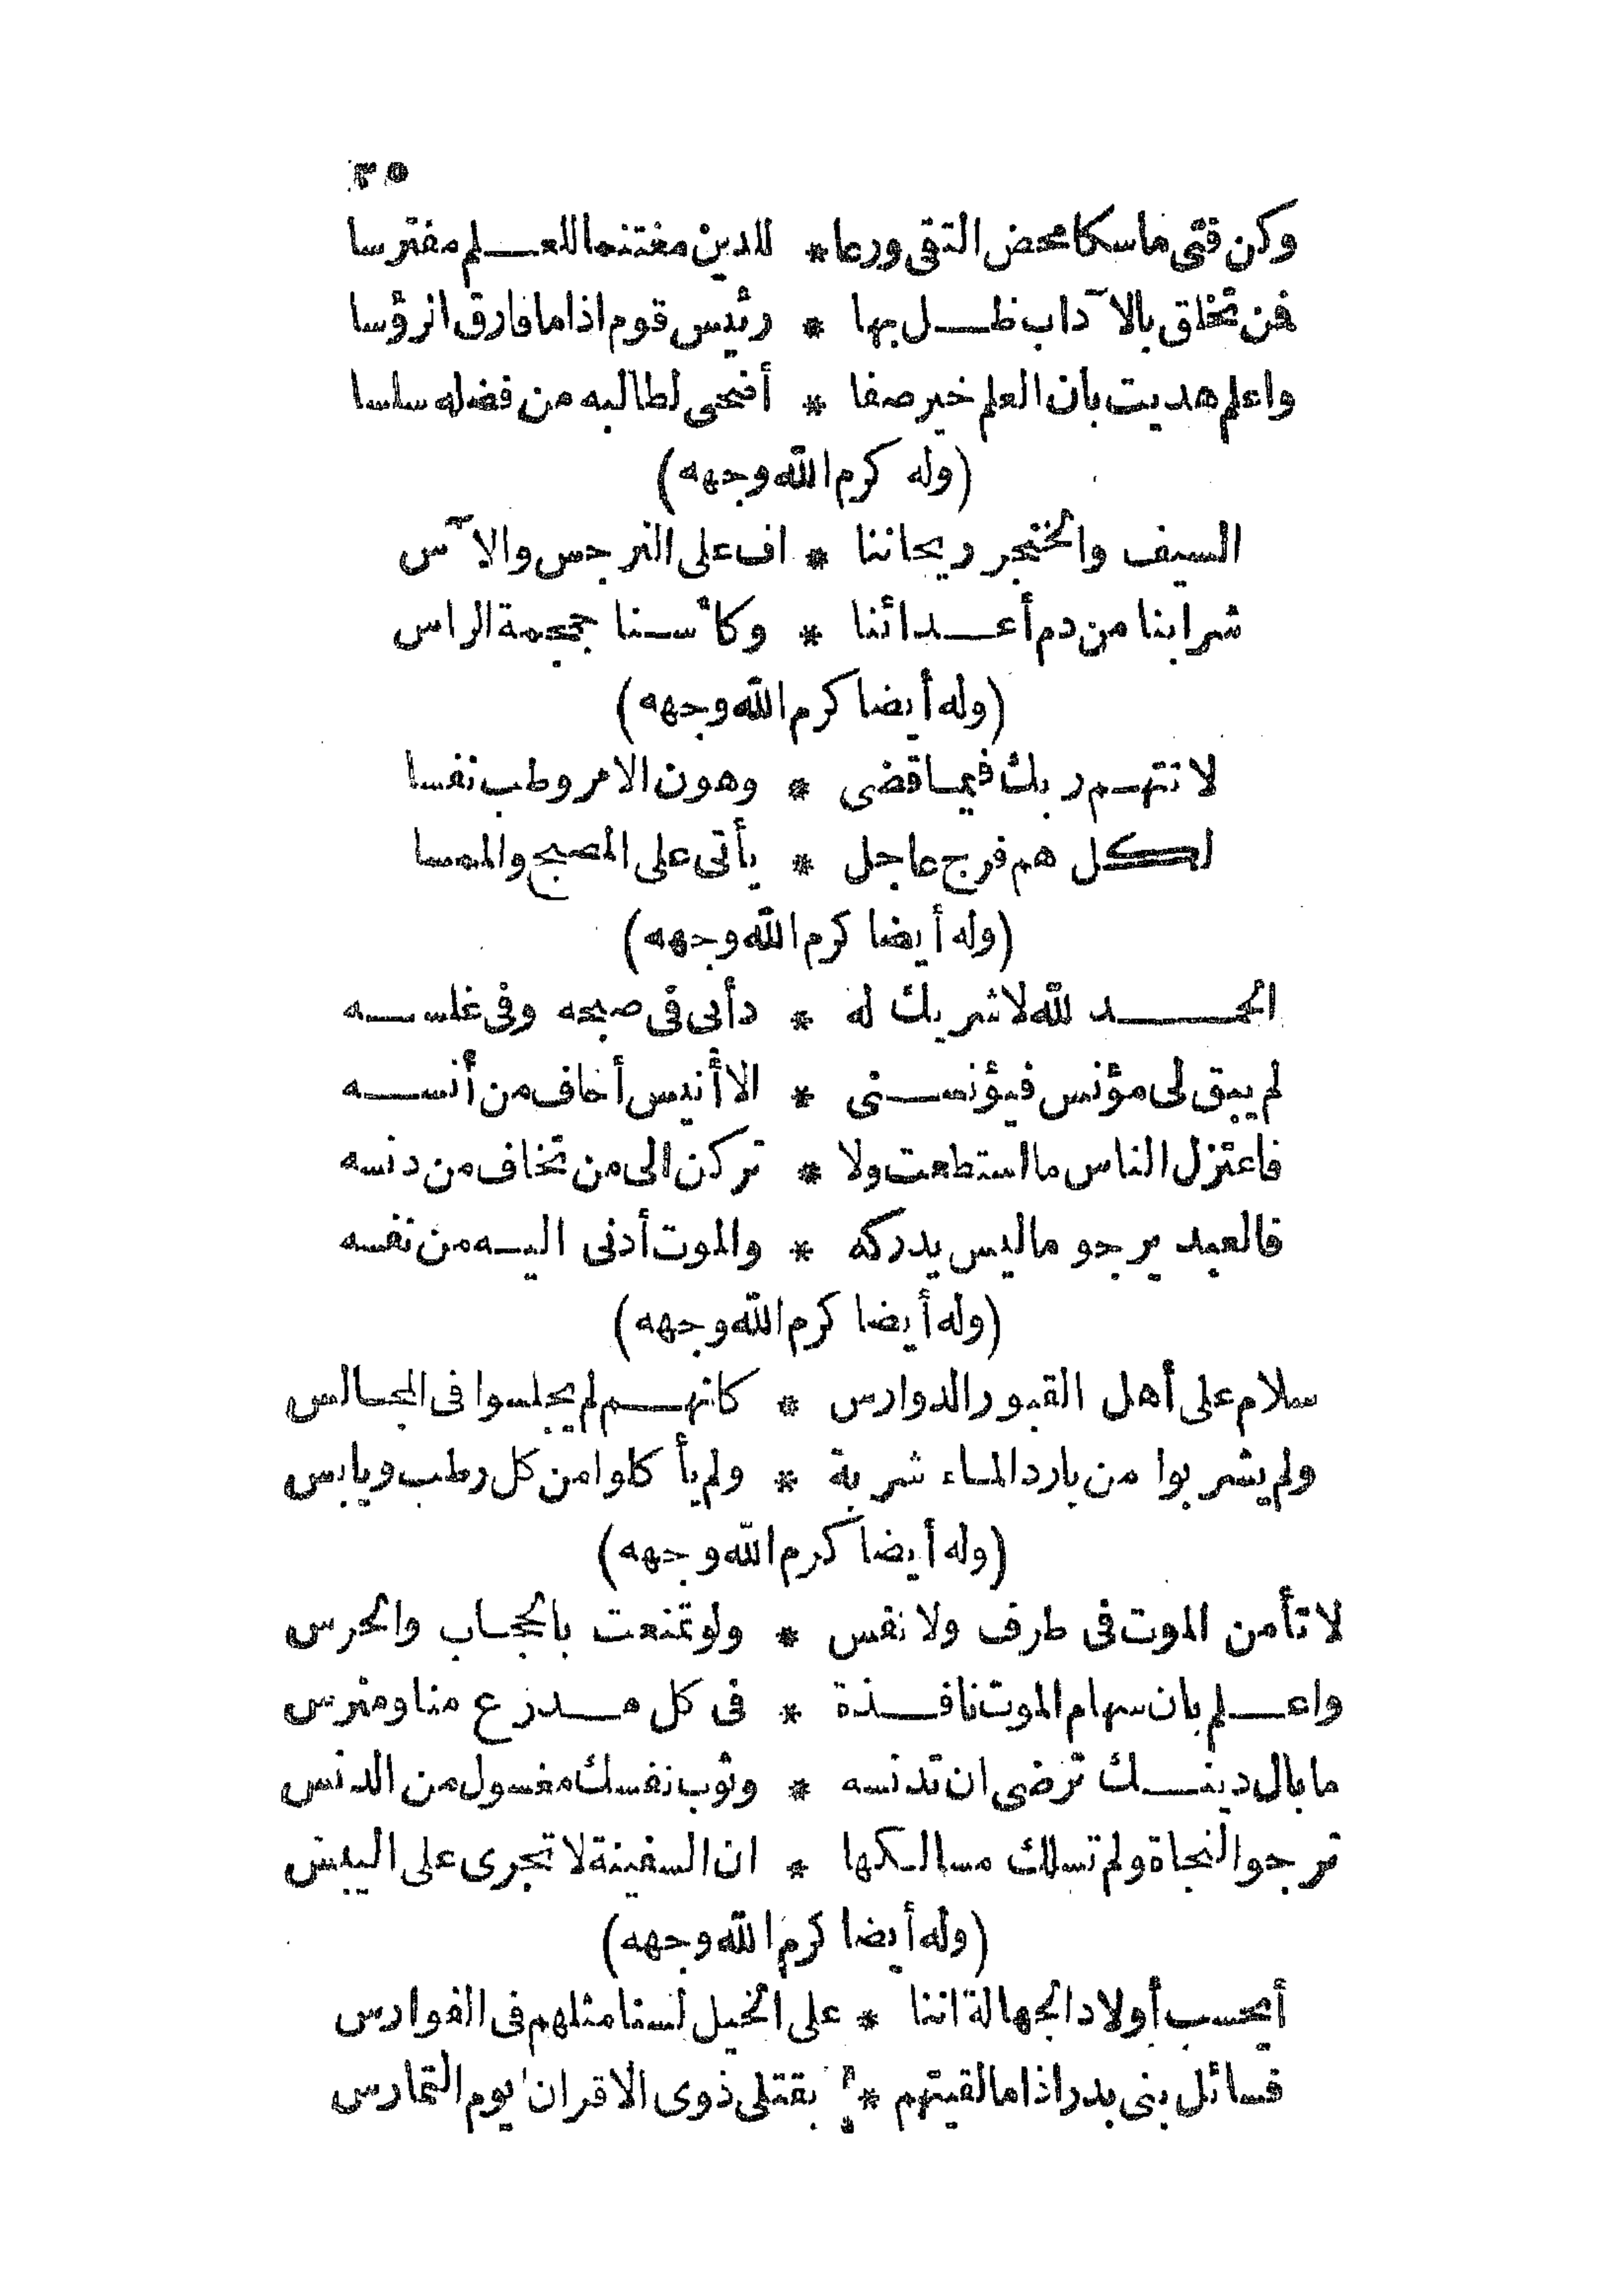 ٣٥
وكن فتى ماسكا محض التقى ورعا * للدين مغتنما للعلم مفترسا
فمن تخلق بالآداب ظل بها * رئيس قوم اذا ما فارق الرؤسا
واعلم هديت بأن العلم خير صفا * أضحى لطالبه من فضله سلسا
(وله كرم الله وجهه)
السيف والخنجر ريحاننا * اف على النرجس والآس
شرابنا من دم أعدائنا * وكأسنا جمجمة الراس
(وله أيضا كرم الله وجهه)
لا تتهم ربك فيما قضى * وهون الامر وطب نفسا
لكل هم فرج عاجل * يأتى على المصبح والممسا
(وله أيضا كرم الله وجهه)
الحمد لله لا شريك له * دأبى فى صبحه وفى غلسه
لم يبق لى مؤنس فيؤنسنى * الا أنيس أخاف من أنسه
فاعتزل الناس ما استطعت ولا * تركن الى من تخاف من دنسه
فالعبد يرجو ما ليس يدركه * والموت أدنى اليه من نفسه
(وله أيضا كرم الله وجهه)
سلام على أهل القبور الدوارس * كانهم لم يجلسوا فى المجالس
ولم يشربوا من بارد الماء شربة * ولم يأكلوا من كل رطب ويابس
(وله أيضا كرم الله وجهه)
لا تأمن الموت فى طرف ولا نفس * ولو تمنعت بالحجاب والحرس
واعلم بان سهام الموت نافذة * فى كل مدرع منا ومترس
ما بال دينك ترضى ان تدنسه * وثوب نفسك مغسول من الدنس
ترجو النجاة ولم تسلك مسالكها * ان السفينة لا تجرى على اليبس
(وله أيضا كرم الله وجهه)
أيحسب أولاد الجهالة اننا * على الخيل لسنا مثلهم فى الفوارس
فسائل بنى بدر اذا ما لقيتهم * بقتلى ذوى الاقران يوم التمارس